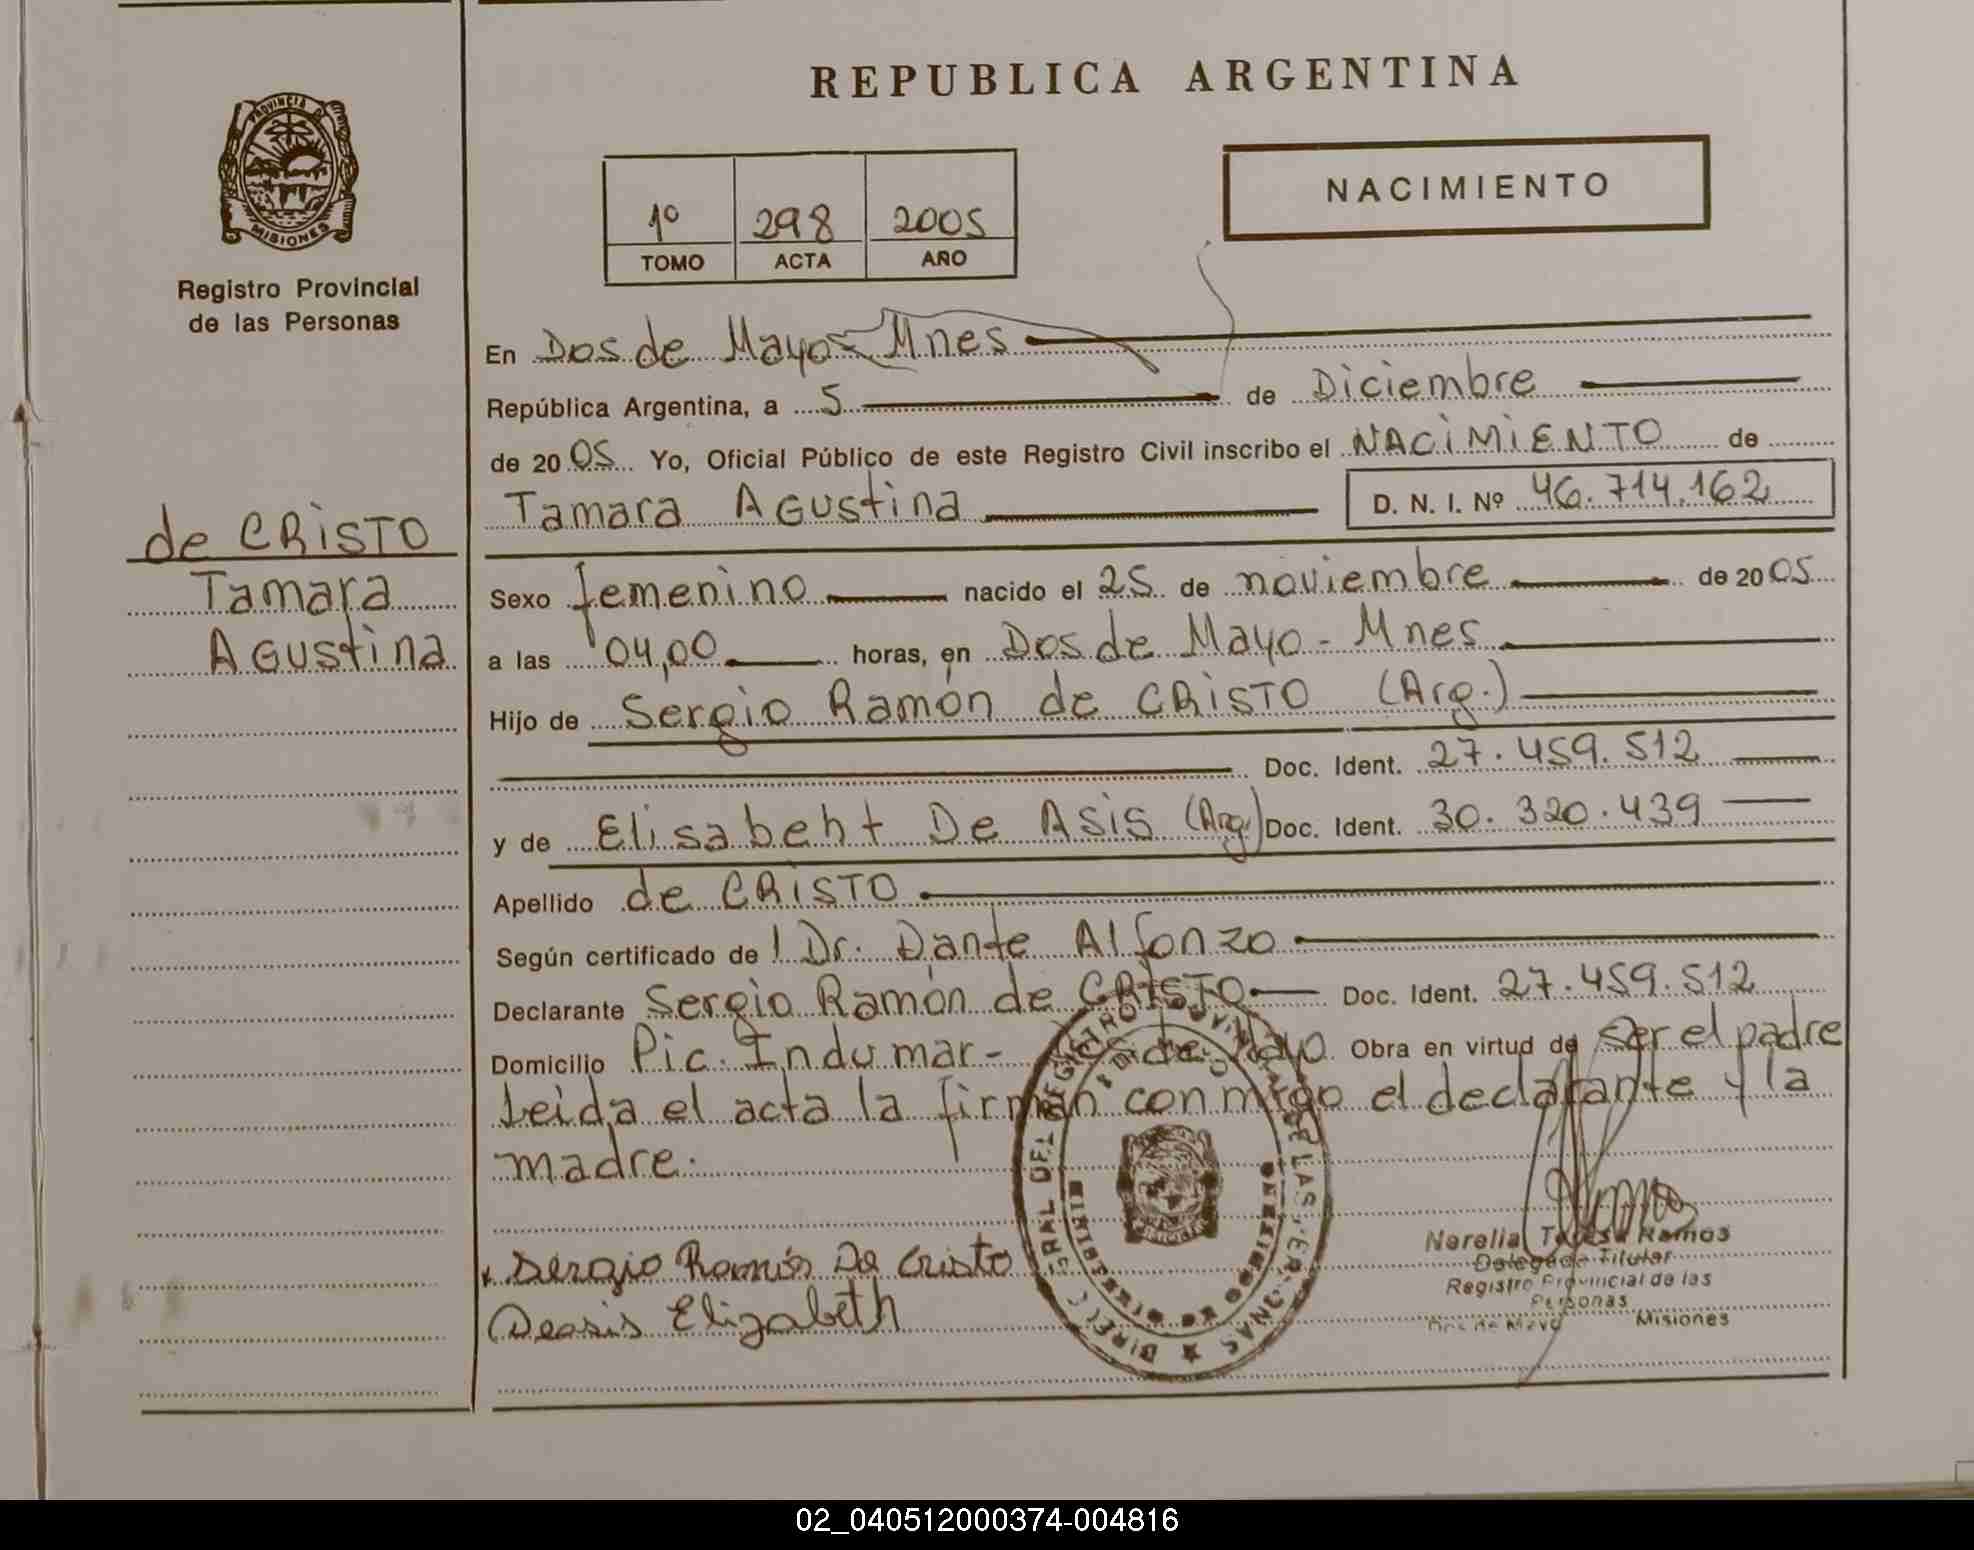 REPUBLICA ARGENTINA
PROVINCIA DE MISIONES
Registro Provincial
de las Personas
NACIMIENTO
1º 298 2005
TOMO ACTA AÑO
de CRISTO
Tamara
Agustina
En Dos de Mayo - Mnes
República Argentina, a 5 de Diciembre
de 2005 Yo, Oficial Público de este Registro Civil inscribo el NACIMIENTO de
Tamara Agustina D. N. I. Nº 46.714.162
Sexo femenino nacido el 25 de noviembre de 2005
a las 04,00 horas, en Dos de Mayo - Mnes
Hijo de Sergio Ramón de CRISTO (Arg.)
Doc. Ident. 27.459.512
y de Elisabeht De Asis (Arg.) Doc. Ident. 30.320.439
Apellido de CRISTO
Según certificado de Dr. Dante Alfonzo
Declarante Sergio Ramón de CRISTO Doc. Ident. 27.459.512
Domicilio Pic. Indumar - Dos de Mayo Obra en virtud de ser el padre
Leida el acta la firman conmigo el declarante y la
madre.
Sergio Ramón De Cristo
Deasis Elizabeth
Narelia Teresa Ramos
Delegada Titular
Registro Provincial de las
Personas
Dos de Mayo Misiones
02_040512000374-004816